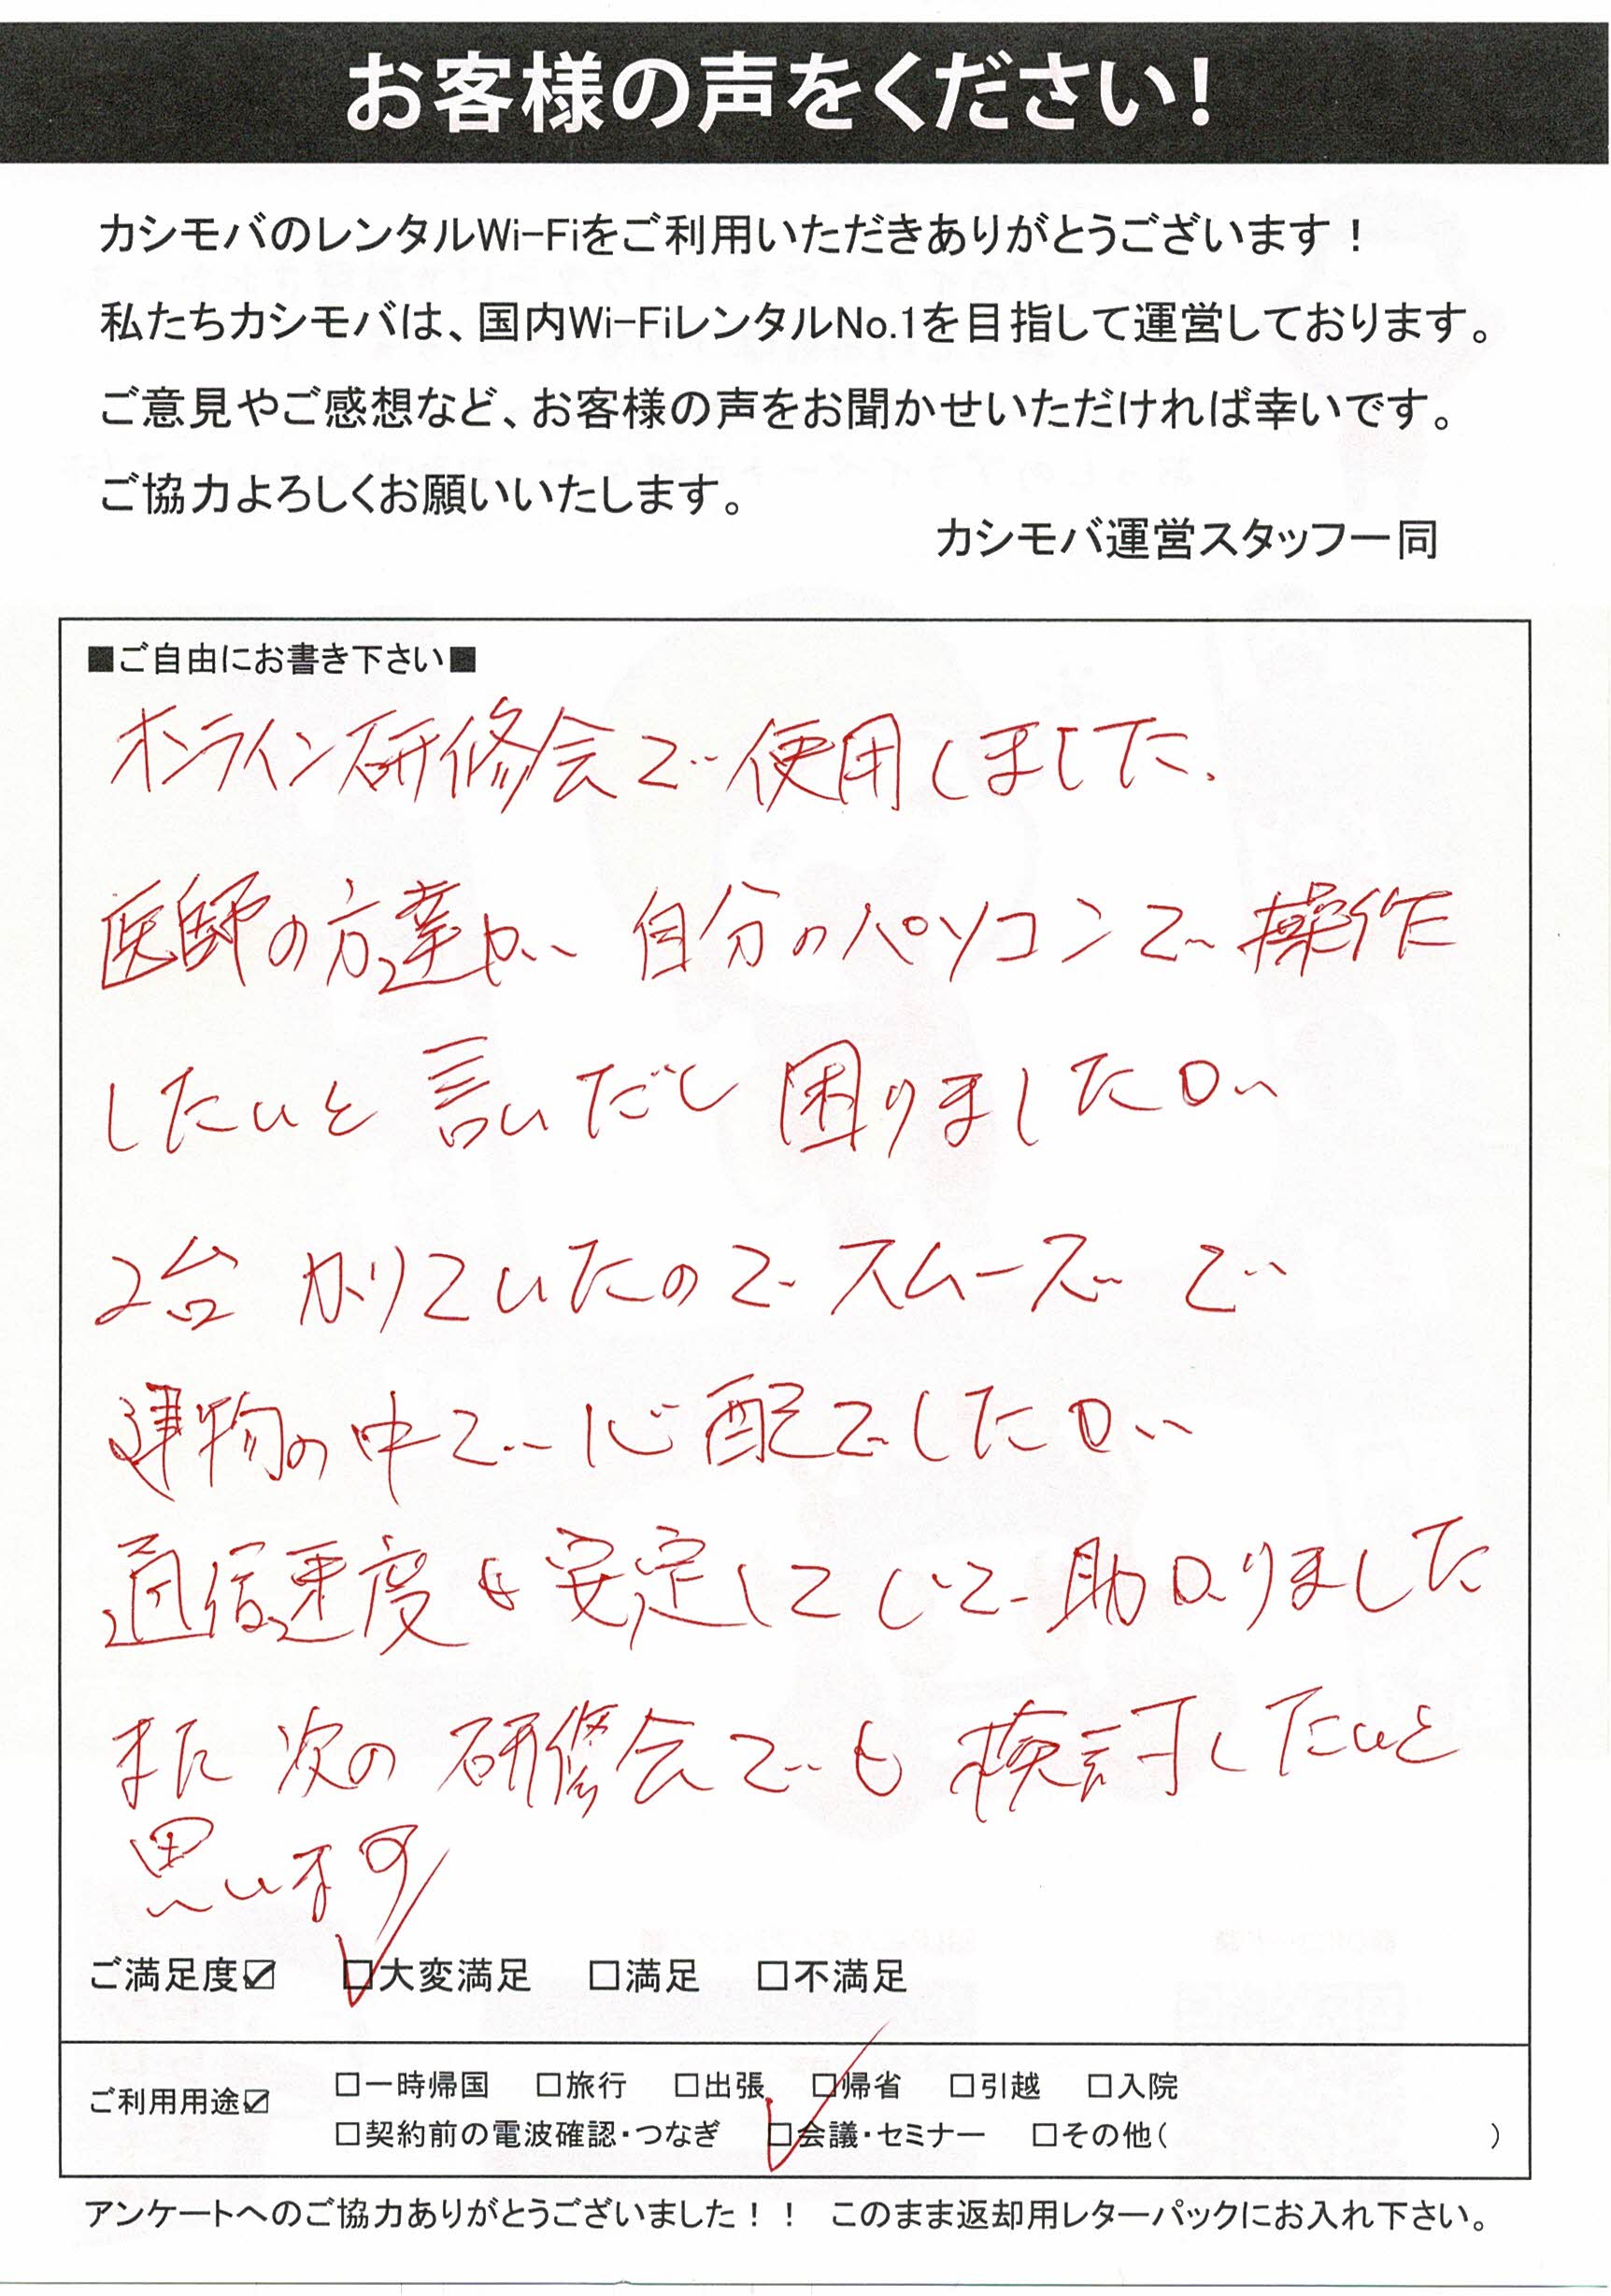 お客様の声をください!
カシモバのレンタルWi-Fiをご利用いただきありがとうございます！
私たちカシモバは、国内Wi-FiレンタルNo.1を目指して運営しております。
ご意見やご感想など、お客様の声をお聞かせいただければ幸いです。
ご協力よろしくお願いいたします。
カシモバ運営スタッフ一同
■ご自由にお書き下さい■
オンライン研修会で使用しました.
医師の方達が 自分のパソコンで操作
したいと言いだし 困りましたが
2台 かりていたので スムーズで
建物の中で 心配でしたが
通信速度も安定していて 助かりました
また 次の 研修会でも 検討したいと
思います
ご満足度☑ ☑大変満足 □満足 □不満足
ご利用用途☑ □一時帰国 □旅行 □出張 □帰省 □引越 □入院
□契約前の電波確認・つなぎ ☑会議・セミナー □その他( )
アンケートへのご協力ありがとうございました！！ このまま返却用レターパックにお入れ下さい。